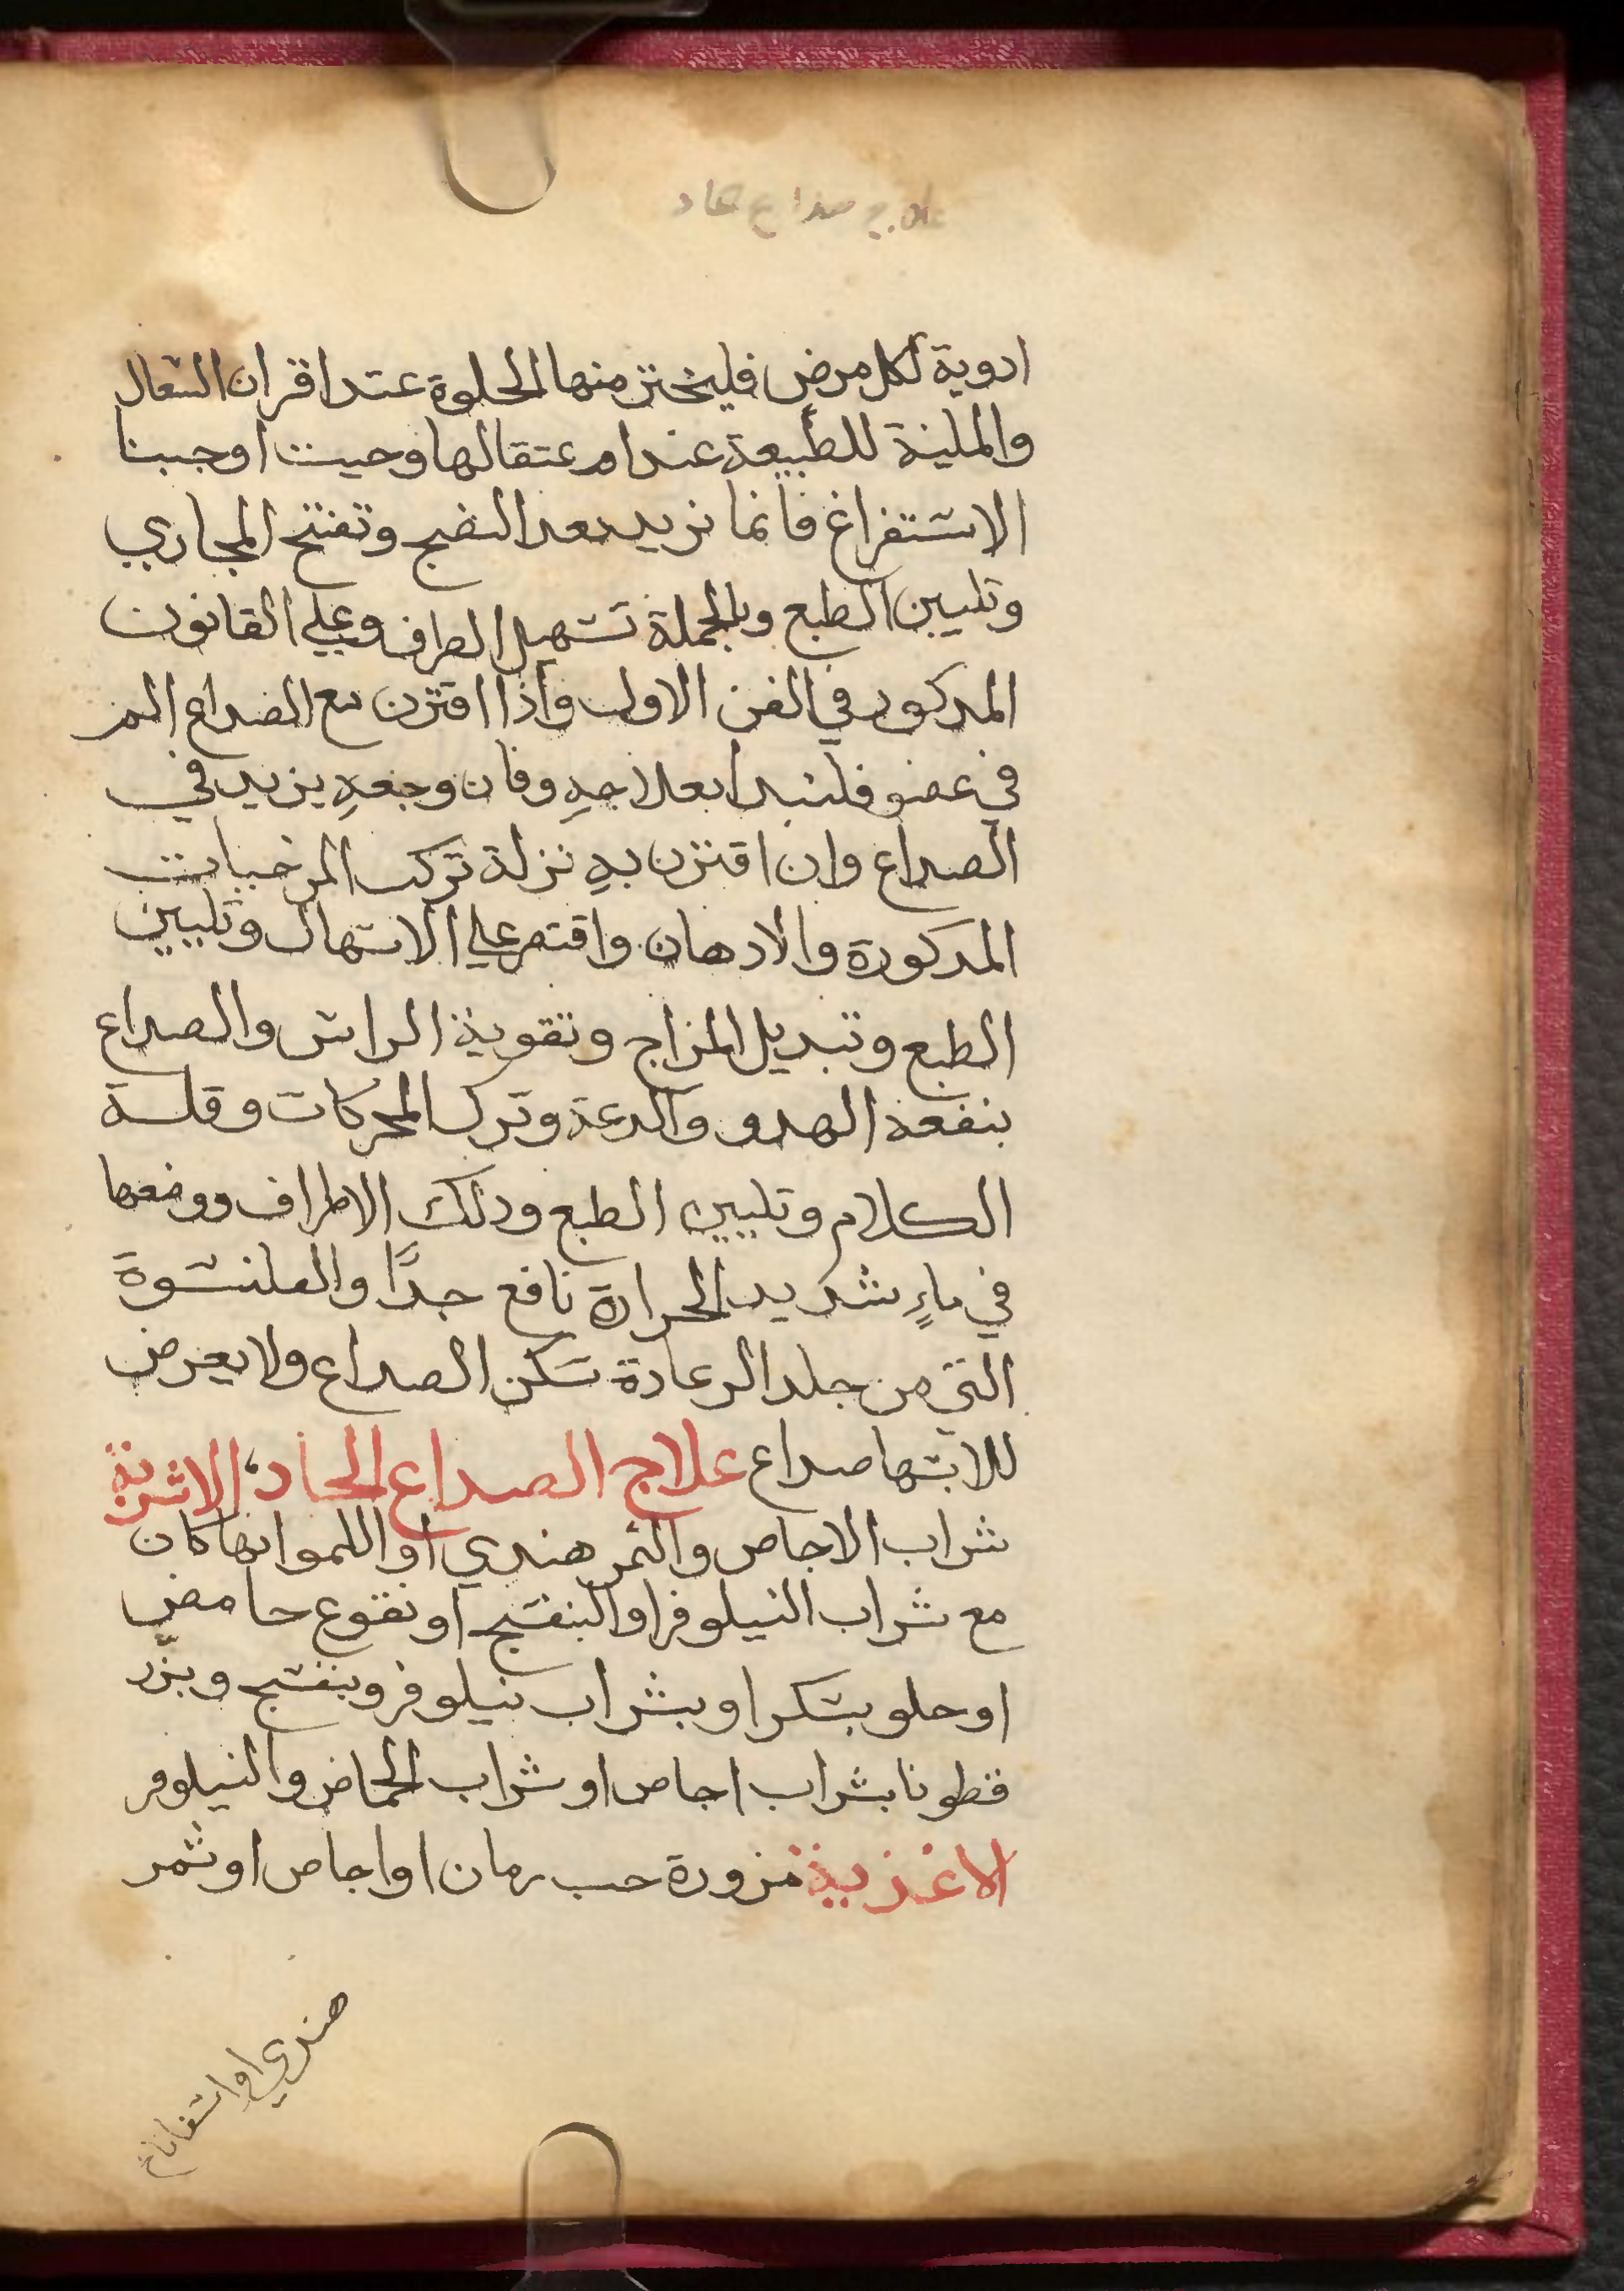 علاج صداع حاد
ادوية لكل مرض فليختر منها الحلوة عند اقران السعال
والملينة للطبيعة عند اعتقالها وحيث اوجبنا
الاستفراغ فانما نريد بعد النضج وتفتح المجاري
وتليين الطبع وبالجملة تسهيل الطراف وعلي القانون
المدكور في الفن الاول واذا اقترن مع الصداع الم
في عضو فلنبدا بعلاجهِ وفان وجعهِ يزيد في
الصداع وان اقترن بهِ نزلة تركت المرخيات
المدكورة والادهان واقتصر علي الاسهال وتليين
الطبع وتبديل المزاج وتقوية الراس والصداع
ينفعه الهدو والدعة وترك المحركات وقلة
الكلام وتليين الطبع ودلك الاطراف ووضعها
في ماءٍ شديد الحرارة نافع جدًا والقلنسوة
التي من جلد الرعادة تسكن الصداع ولا يعرض
للابسها صداع علاج الصداع الحاد، الاشربة
شراب الاجاص والتمر هندي او الليمو ايها كان
مع شراب النيلوفر او البنفسج او نقوع حامض
او حلو بسكر او بشراب نيلوفر وبنفسج وبزر
قطونا بشراب اجاص او شراب الحماض والنيلوفر
الاغذية مزورة حب رمان او اجاص او تمر
هندي او اسفاناخ